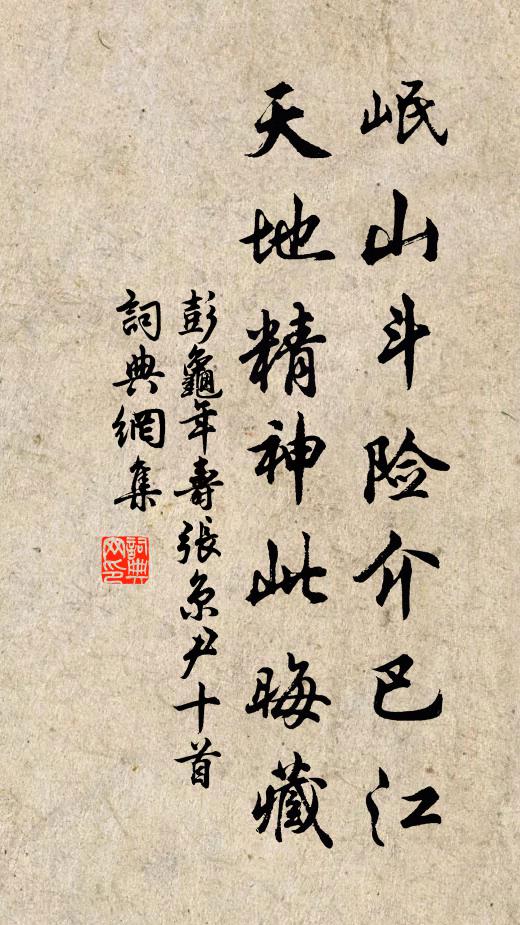 岷山斗险介巴江
天地精神此晦藏
彭龜年壽張京尹十首
詞典網集
詞典网印